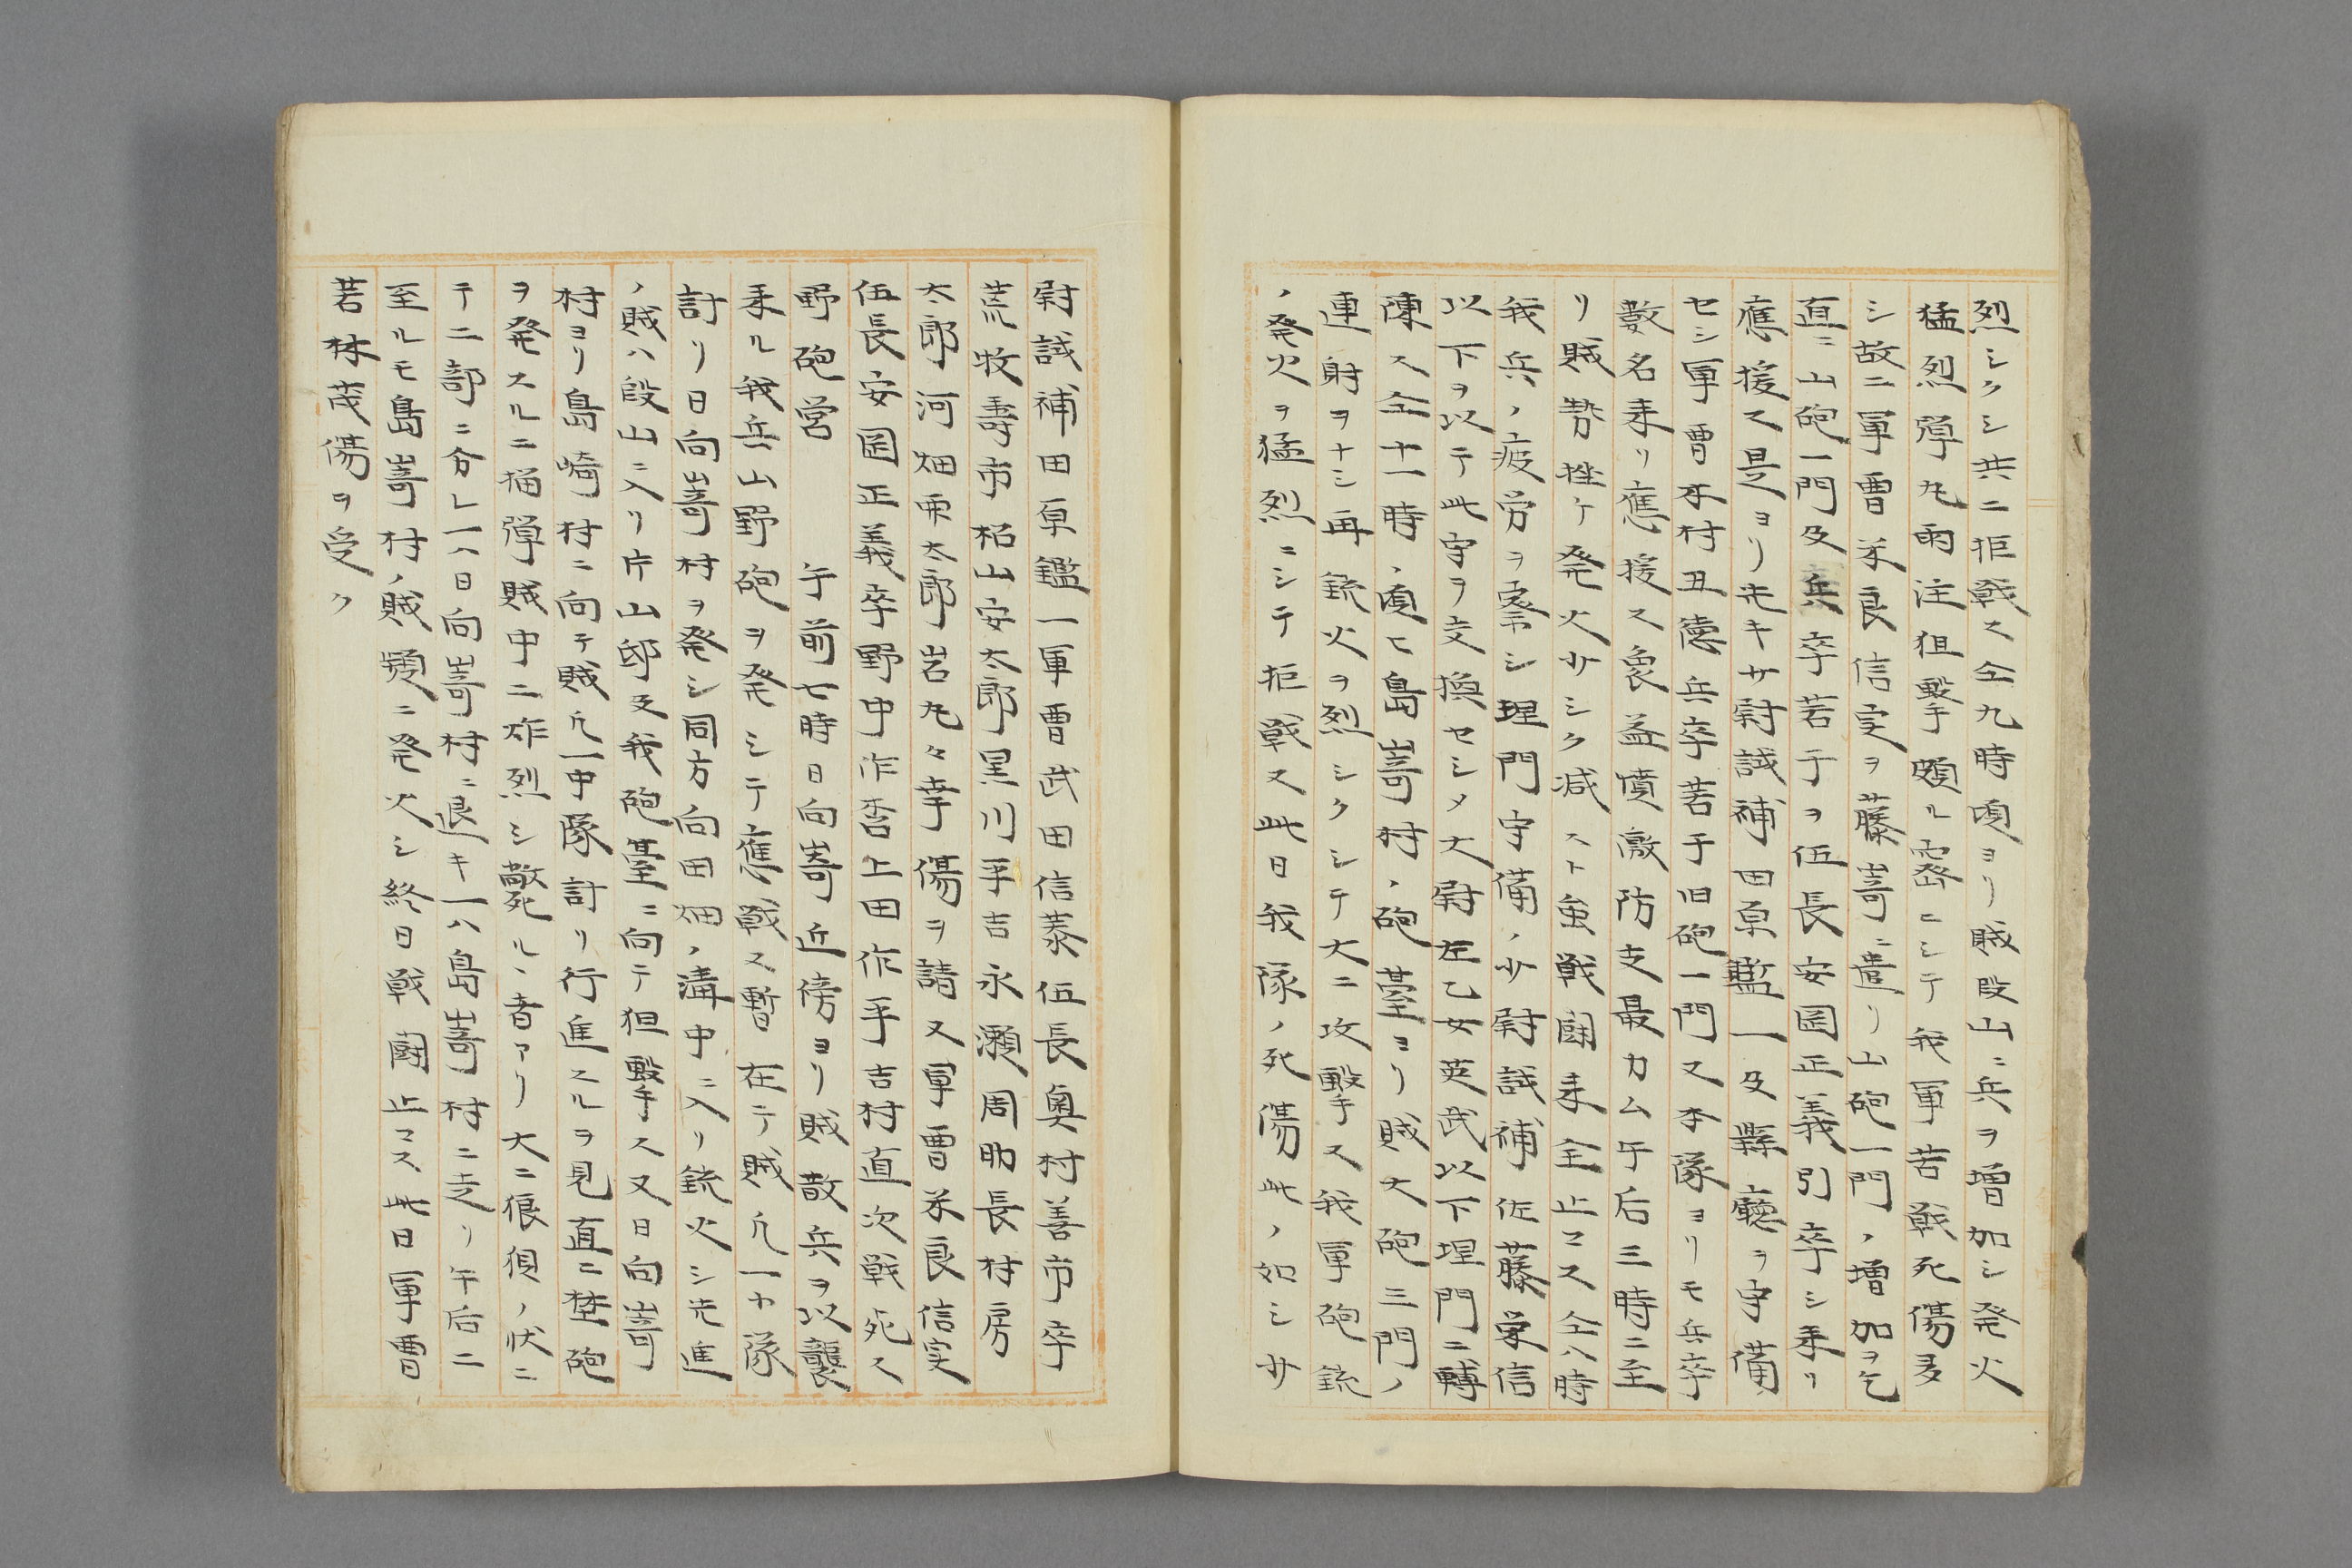 烈シクシ共ニ拒戦ス仝九時頃ヨリ賊段山ニ兵ヲ増加シ発火
猛烈弾丸雨注狙撃頗ル密ニシテ我軍苦戦死傷多
シ故ニ軍曹米良信実ヲ藤嵜ニ遣リ山砲一門ノ増加ヲ乞
直ニ山砲一門及兵卒若干ヲ伍長安圀正義引卒シ来リ
應援ス是ヨリ先キサ尉試補田原鑑一及縣廳ヲ守備
セシ軍曹木村丑徳兵卒若干旧砲一門又本隊ヨリモ兵卒
数名来リ應援ス衆益憤激防支最カム午后三時ニ至
リ賊勢挫ケ発火少シク減スト虽戦闘未全止マス仝八時
我兵ノ疲労ヲ察シ埋門守備ノ少尉試補佐藤栄信
以下ヲ以テ此守ヲ交換セシメ大尉在乙女英武以下埋門ニ轉
陳ス仝十一時ノ頃ヒ島嵜村ノ砲臺ヨリ賊大砲三門ノ
連射ヲナシ再銃火ヲ烈シクシテ大ニ攻撃ス我軍砲銃
ノ発火ヲ猛烈ニシテ拒戦ス此日我隊ノ死傷此ノ如シ少
尉試補田原鑑一軍曹武田信蓁伍長奥村善市卒
荒牧壽市柗山安太郎黒川平吉永瀬周助長村房
太郎河畑栗太郎岩丸々幸傷ヲ請又軍曹米良信実
伍長安圀正義卒野中作杏上田作平吉村直次戦死ス
野砲営　午前七時日向嵜近傍ヨリ賊散兵ヲ以襲
来ル我兵山野砲ヲ発シテ應戦ス暫在テ賊凢一ヶ隊
計リ日向嵜村ヲ発シ同方向田畑ノ溝中ニ入リ銃火シ先進
ノ賊ハ段山ニ入リ片山邸及我砲臺ニ向テ狙撃ス又日向嵜
村ヨリ島崎村ニ向テ賊凢一中隊計リ行進スルヲ見直ニ埜砲
ヲ発スルニ榴弾賊中ニ炸烈シ斃死ル丶者アリ大ニ狼狽ノ状ニ
テ二部ニ分レ一ハ日向嵜村ニ退キ一ハ島嵜村ニ走リ午后ニ
至ルモ島嵜村ノ賊頻ニ発火シ終日戦闘止マス此日軍曹
若林茂傷ヲ受ク